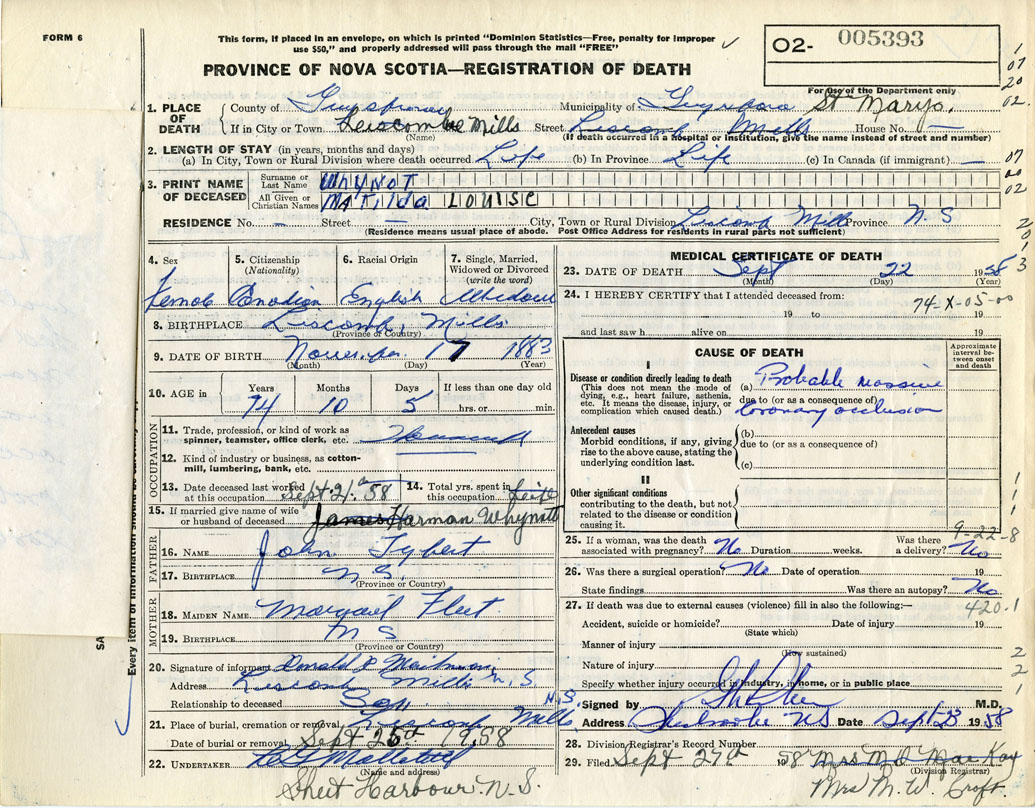 FORM 6
This form, if placed in an envelope, on which is printed "Dominion Statistics—Free, penalty for improper
use $50," and properly addressed will pass through the mail "FREE"
O2- 005393
PROVINCE OF NOVA SCOTIA—REGISTRATION OF DEATH
For use of the Department only
1. PLACE OF DEATH
County of Municipality of St Marys.
If in City or Town Liscombe Mills Street Liscomb Mills House No. —
(Name) (If death occurred in a hospital or institution, give the name instead of street and number)
2. LENGTH OF STAY (in years, months and days)
(a) In City, Town or Rural Division where death occurred Life (b) In Province Life (c) In Canada (if immigrant) —
3. PRINT NAME OF DECEASED
Surname or Last Name WHYNOT
All Given or Christian Names MATILda LOUISE
RESIDENCE No. — Street City, Town or Rural Division Liscomb Mills Province N S
(Residence means usual place of abode. Post Office Address for residents in rural parts not sufficient)
4. Sex 5. Citizenship (Nationality) 6. Racial Origin 7. Single, Married, Widowed or Divorced (write the word)
Female Canadian English Widowed
8. BIRTHPLACE Liscomb, Mills
(Province or Country)
9. DATE OF BIRTH November 17 1883
(Month) (Day) (Year)
10. AGE in Years Months Days If less than one day old
74 10 5 hrs. or min.
OCCUPATION
11. Trade, profession, or kind of work as
spinner, teamster, office clerk, etc.
12. Kind of industry or business, as cotton-
mill, lumbering, bank, etc.
13. Date deceased last worked at this occupation Sept. 21st 58 14. Total yrs. spent in this occupation Life
15. If married give name of wife
or husband of deceased James Harman Whynott
FATHER
16. NAME John Tybert
17. BIRTHPLACE N. S.
(Province or Country)
MOTHER
18. MAIDEN NAME Fleet
19. BIRTHPLACE N S
(Province or Country)
20. Signature of informant Donald
Address Liscomb Mills N. S.
Relationship to deceased Son
21. Place of burial, cremation or removal Liscomb Mills N.S.
Date of burial or removal Sept 25th 1958
22. UNDERTAKER
(Name and address)
Sheet Harbour N. S.
MEDICAL CERTIFICATE OF DEATH
23. DATE OF DEATH Sept 22 1958
(Month) (Day) (Year)
24. I HEREBY CERTIFY that I attended deceased from:
74-X-05-00
19 to 19
and last saw h alive on 19
CAUSE OF DEATH
Approximate interval between onset and death
I
Disease or condition directly leading to death
(This does not mean the mode of
dying, e.g., heart failure, asthenia,
etc. It means the disease, injury, or
complication which caused death.)
(a) Probable massive
due to (or as a consequence of)
coronary occlusion
Antecedent causes
Morbid conditions, if any, giving
rise to the above cause, stating the
underlying condition last.
(b)
due to (or as a consequence of)
(c)
II
Other significant conditions
contributing to the death, but not
related to the disease or condition
causing it.
9-22-8
25. If a woman, was the death
associated with pregnancy? No Duration weeks. Was there a delivery? No
26. Was there a surgical operation? No Date of operation 19
State findings Was there an autopsy? No
27. If death was due to external causes (violence) fill in also the following:—
420.1
Accident, suicide or homicide? Date of injury 19
(State which)
Manner of injury
(How sustained)
Nature of injury
Specify whether injury occurred in industry, in home, or in public place
Signed by M.D.
Address Sherbrooke N.S. Date Sept 23 1958
28. Division Registrar's Record Number
29. Filed Sept 27th 1958 Mrs M D MacKay
(Division Registrar)
Mrs M. W. Croft.